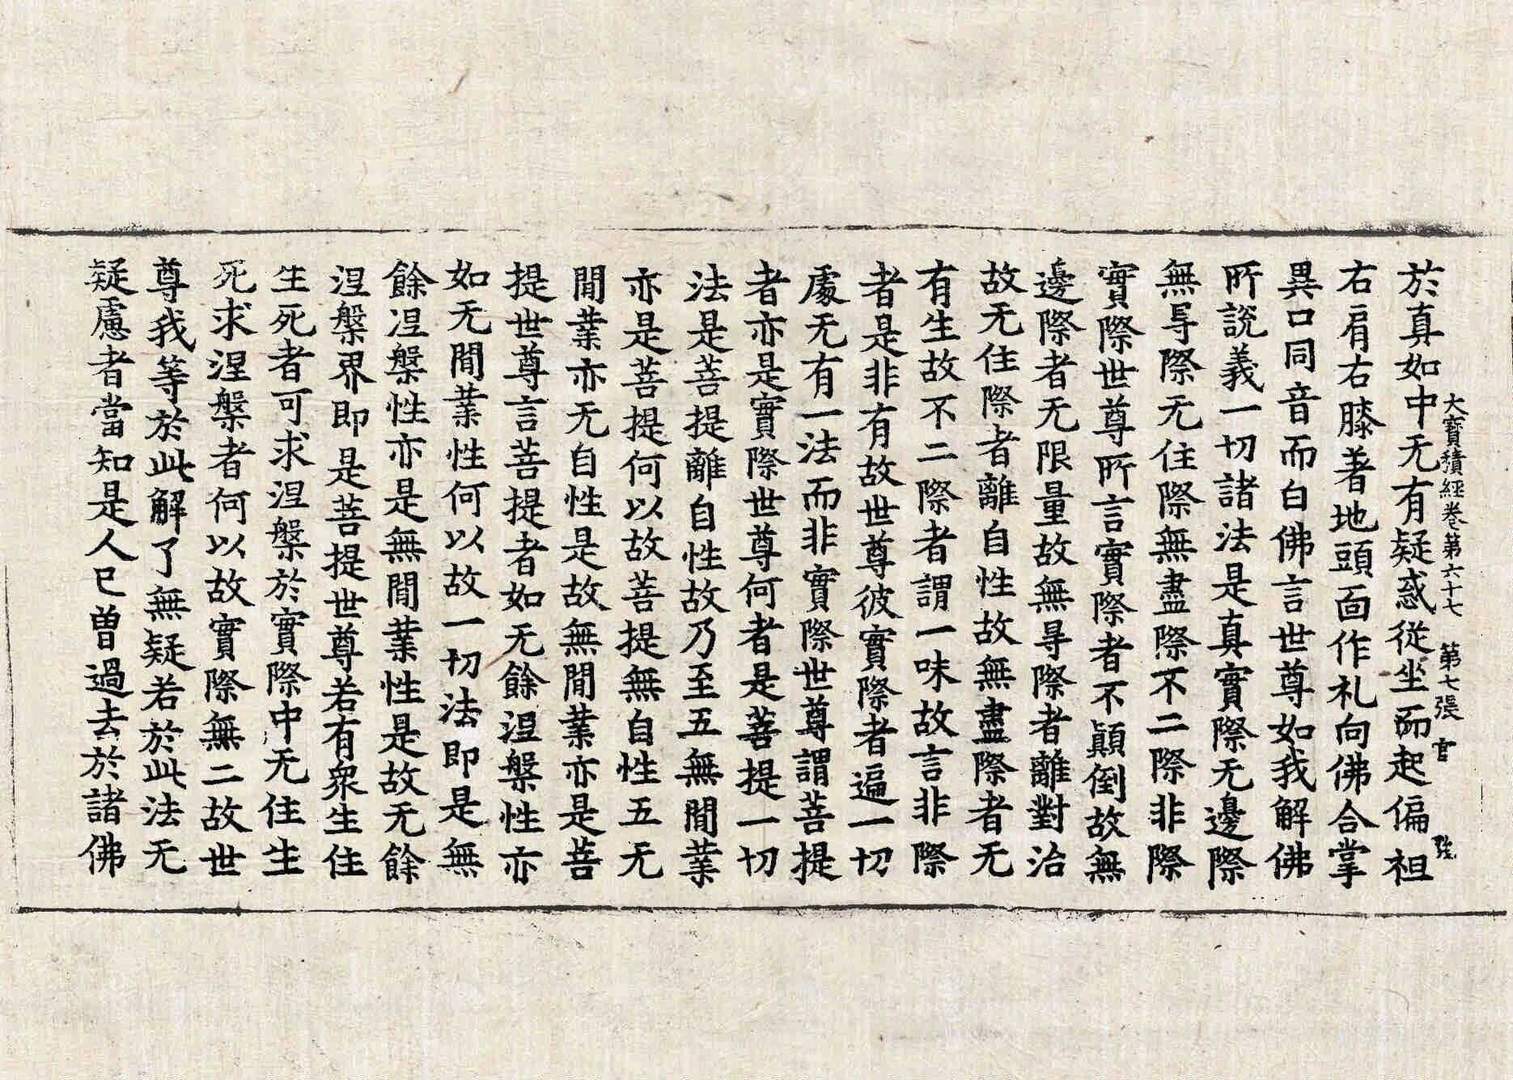 大寶積經卷第六十七 第七張 官
於真如中无有疑惑從坐而起偏袒
右肩右膝著地頭面作礼向佛合掌
異口同音而白佛言世尊如我解佛
所說義一切諸法是真實際无邊際
無㝵際无住際無盡際不二際非際
實際世尊所言實際者不顛倒故無
邊際者无限量故無㝵際者離對治
故无住際者離自性故無盡際者无
有生故不二際者謂一味故言非際
者是非有故世尊彼實際者遍一切
處无有一法而非實際世尊謂菩提
者亦是實際世尊何者是菩提一切
法是菩提離自性故乃至五無閒業
亦是菩提何以故菩提無自性五无
閒業亦无自性是故無閒業亦是菩
提世尊言菩提者如无餘涅槃性亦
如无閒業性何以故一切法即是無
餘涅槃性亦是無閒業性是故无餘
涅槃界即是菩提世尊若有衆生住
生死者可求涅槃於實際中无住生
死求涅槃者何以故實際無二故世
尊我等於此解了無疑若於此法无
疑慮者當知是人已曾過去於諸佛